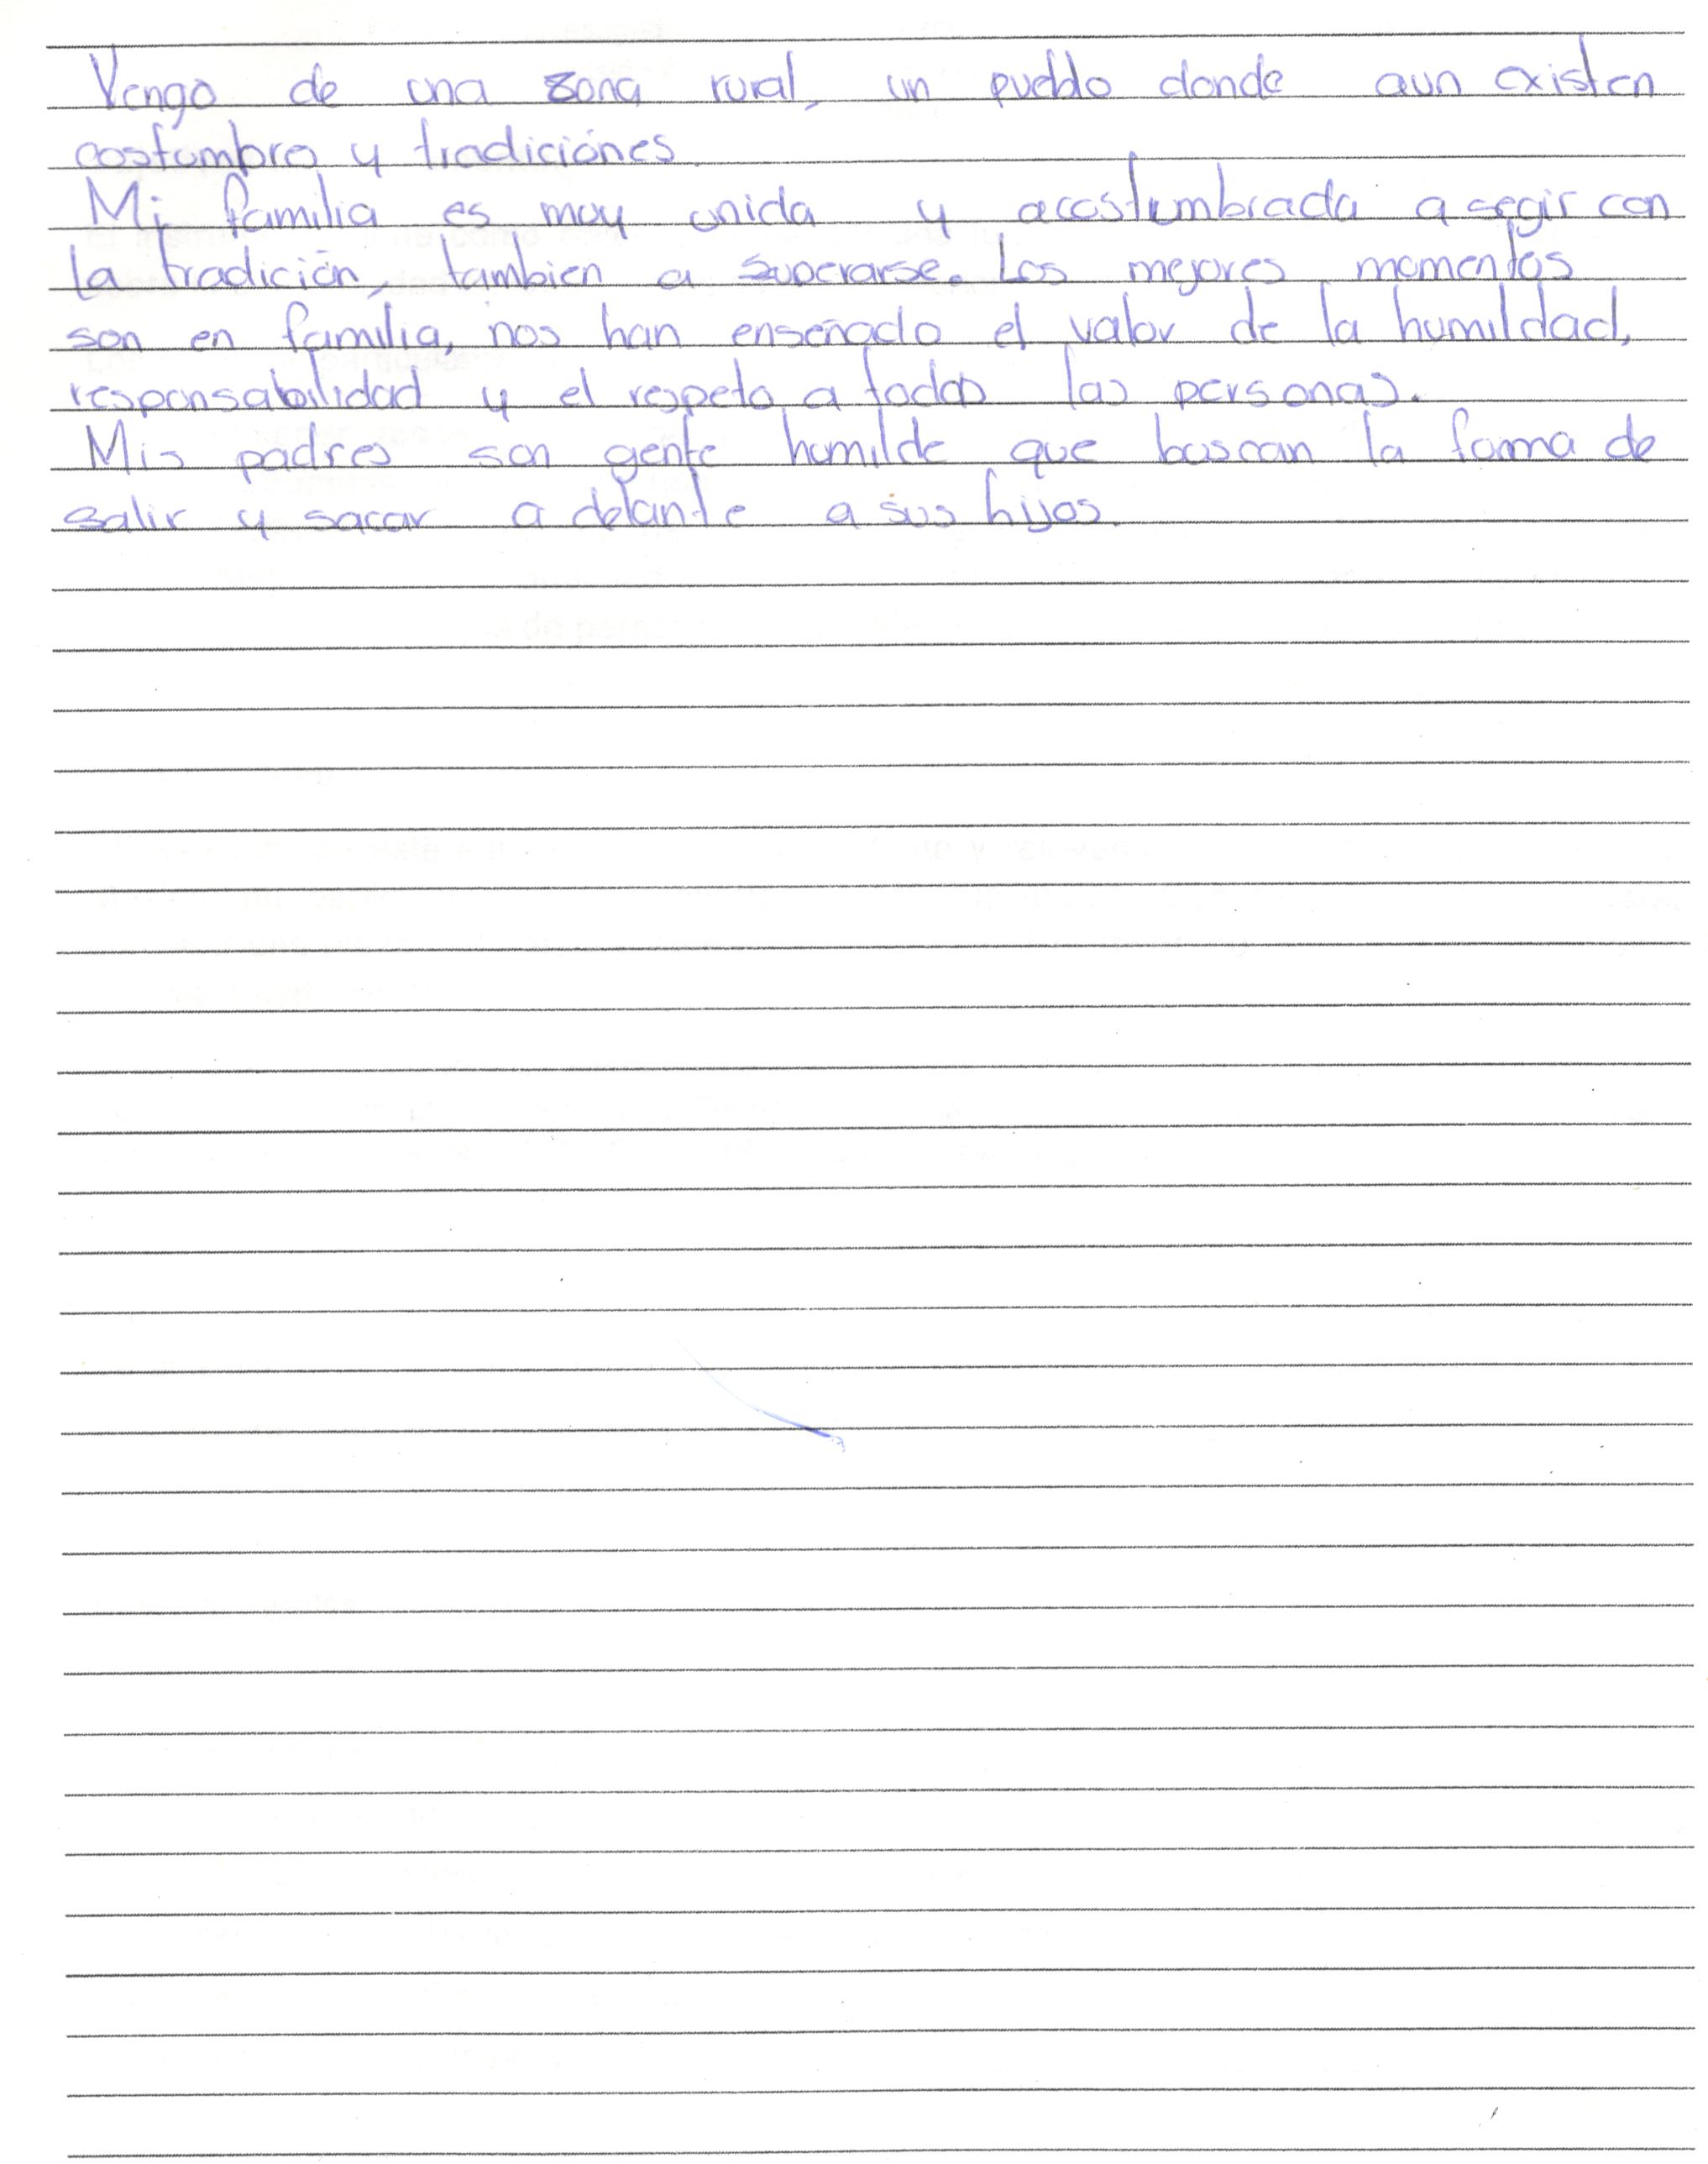 Vengo de una zona rural, un pueblo donde aun existen
costumbre y tradiciónes.
Mi familia es muy unida y acostumbrada a segir con
la tradición, tambien a superarse. Los mejores momentos
son en familia, nos han enseñado el valor de la humildad,
responsabilidad y el respeto a todas las personas.
Mis padres son gente humilde que buscan la forma de
salir y sacar a delante a sus hijos.